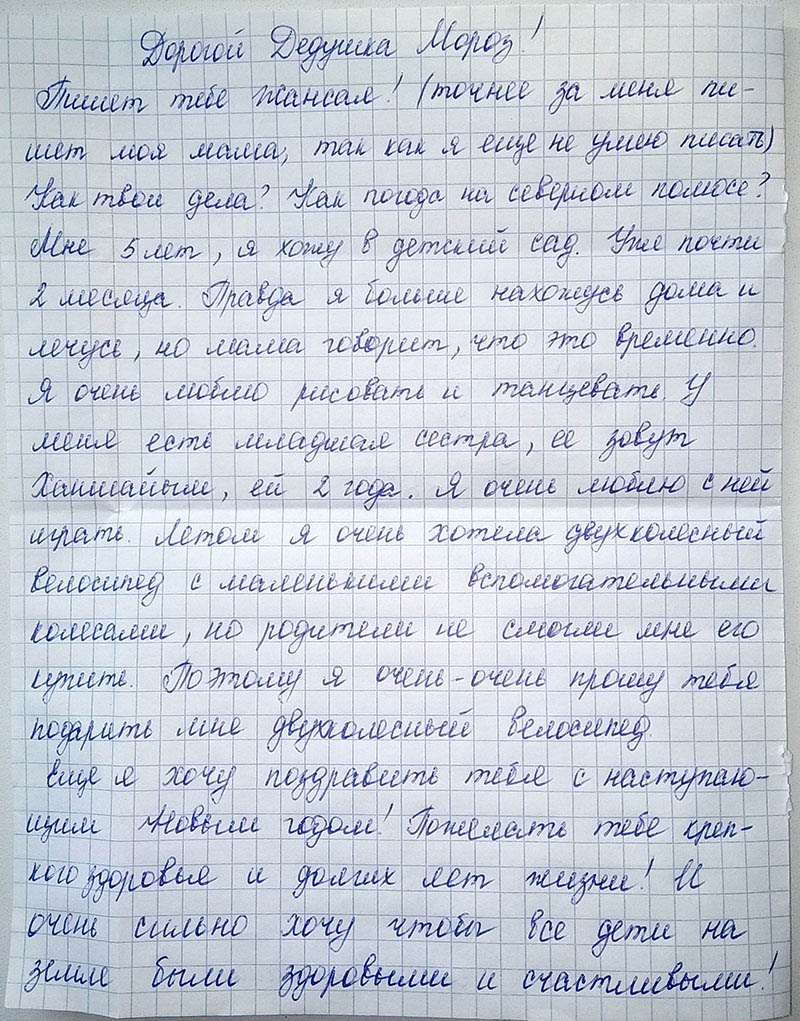 Дорогой Дедушка Мороз!
Пишет тебе Жансая! (точнее за меня пи-
шет моя мама, так как я еще не умею писать)
Как твои дела? Как погода на северном полюсе?
Мне 5 лет, я хожу в детский сад. Уже почти
2 месяца. Правда я больше нахожусь дома и
лечусь, но мама говорит, что это временно.
Я очень люблю рисовать и танцевать. У
меня есть младшая сестра, ее зовут
Ханшайым, ей 2 года. Я очень люблю с ней
играть. Летом я очень хотела двухколесный
велосипед с маленькими вспомогательными
колесами, но родители не смогли мне его
купить. Поэтому я очень-очень прошу тебя
подарить мне двухколесный велосипед.
Еще я хочу поздравить тебя с наступаю-
щим Новым годом! Пожелать тебе креп-
кого здоровья и долгих лет жизни! И
очень сильно хочу чтобы все дети на
земле были здоровыми и счастливыми!